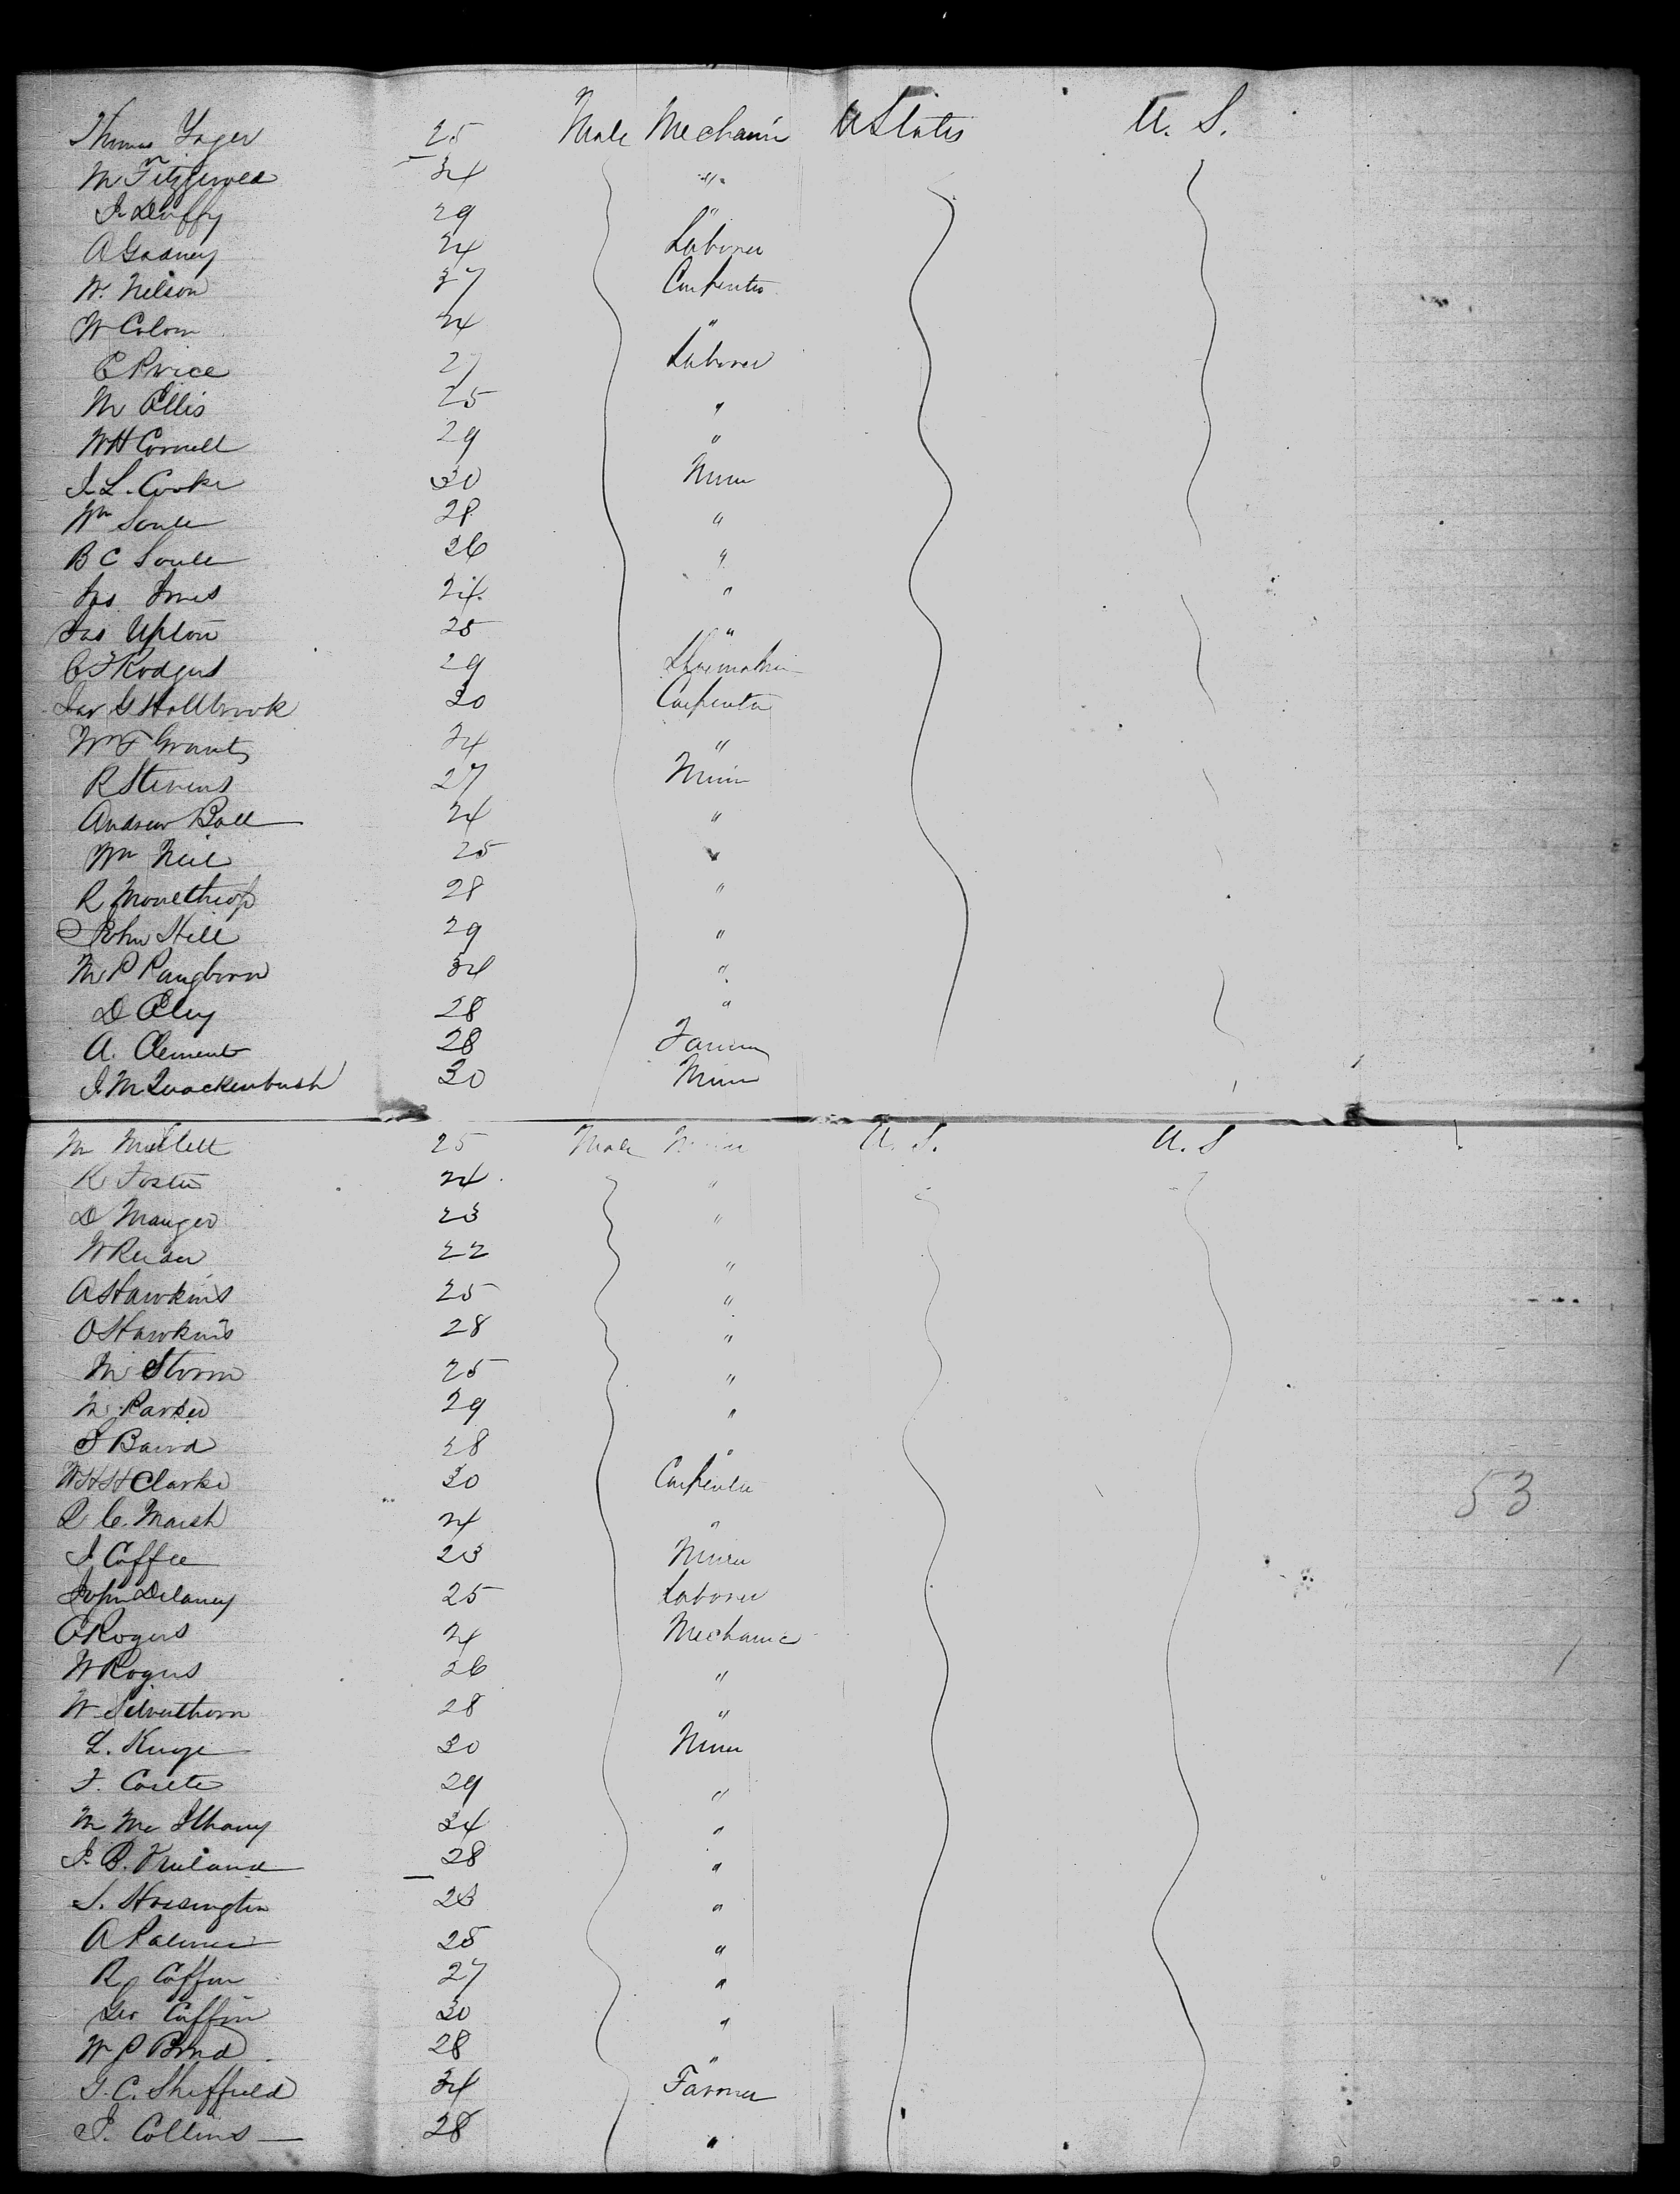 Thomas Yager 25 Male Mechanic U States U. S.
M Fitzgerald 34 "
J Duffy 29 "
A Gadney 24 Laborer
W. Nelson 37 Carpenter
W Colom 24 "
C Price 27 Laborer
M Ellis 25 "
W H Cornell 29 "
J. L. Cooke 30 Miner
Wm Soule 28 "
B C Soule 26 "
Jas Jones 24 "
Jas Upton 25 "
C F Rodgers 29 Shoemaker
Jas G Hollbrook 30 Carpenter
Wm F Grant 24 "
R Stevens 27 Miner
Andrew Ball 24 "
Wm Neil 25 "
R 28 "
John Hill 29 "
M P Pangborn 34 "
D Eley 28 "
A. Clement 28 Farmer
J M Quackenbush 30 Miner
M Mullett 25 Male Miner U. S. U. S
R Foster 24 "
D Manger 23 "
W Reeder 22 "
A Hawkins 25 "
O Hawkins 28 "
M Storm 25 "
M. Parker 29 "
S Baird 28 "
W H H Clarke 30 Carpenter
R C. Marsh 24 "
J Coffee 23 Miner
John Delaney 25 Laborer
C Rogers 24 Mechanic
W Rogers 26 "
W Silverthorn 28 "
L. 30 Miner
F. Coulter 29 "
M Mc Ilhany 34 "
J. B. Vreeland 28 "
S. Hossington 23 "
A Palmer 25 "
R Coffin 27 "
Geo Coffin 30 "
W P Bond 28 "
G. C. Sheffield 34 Farmer
J. Collins 28 "
53